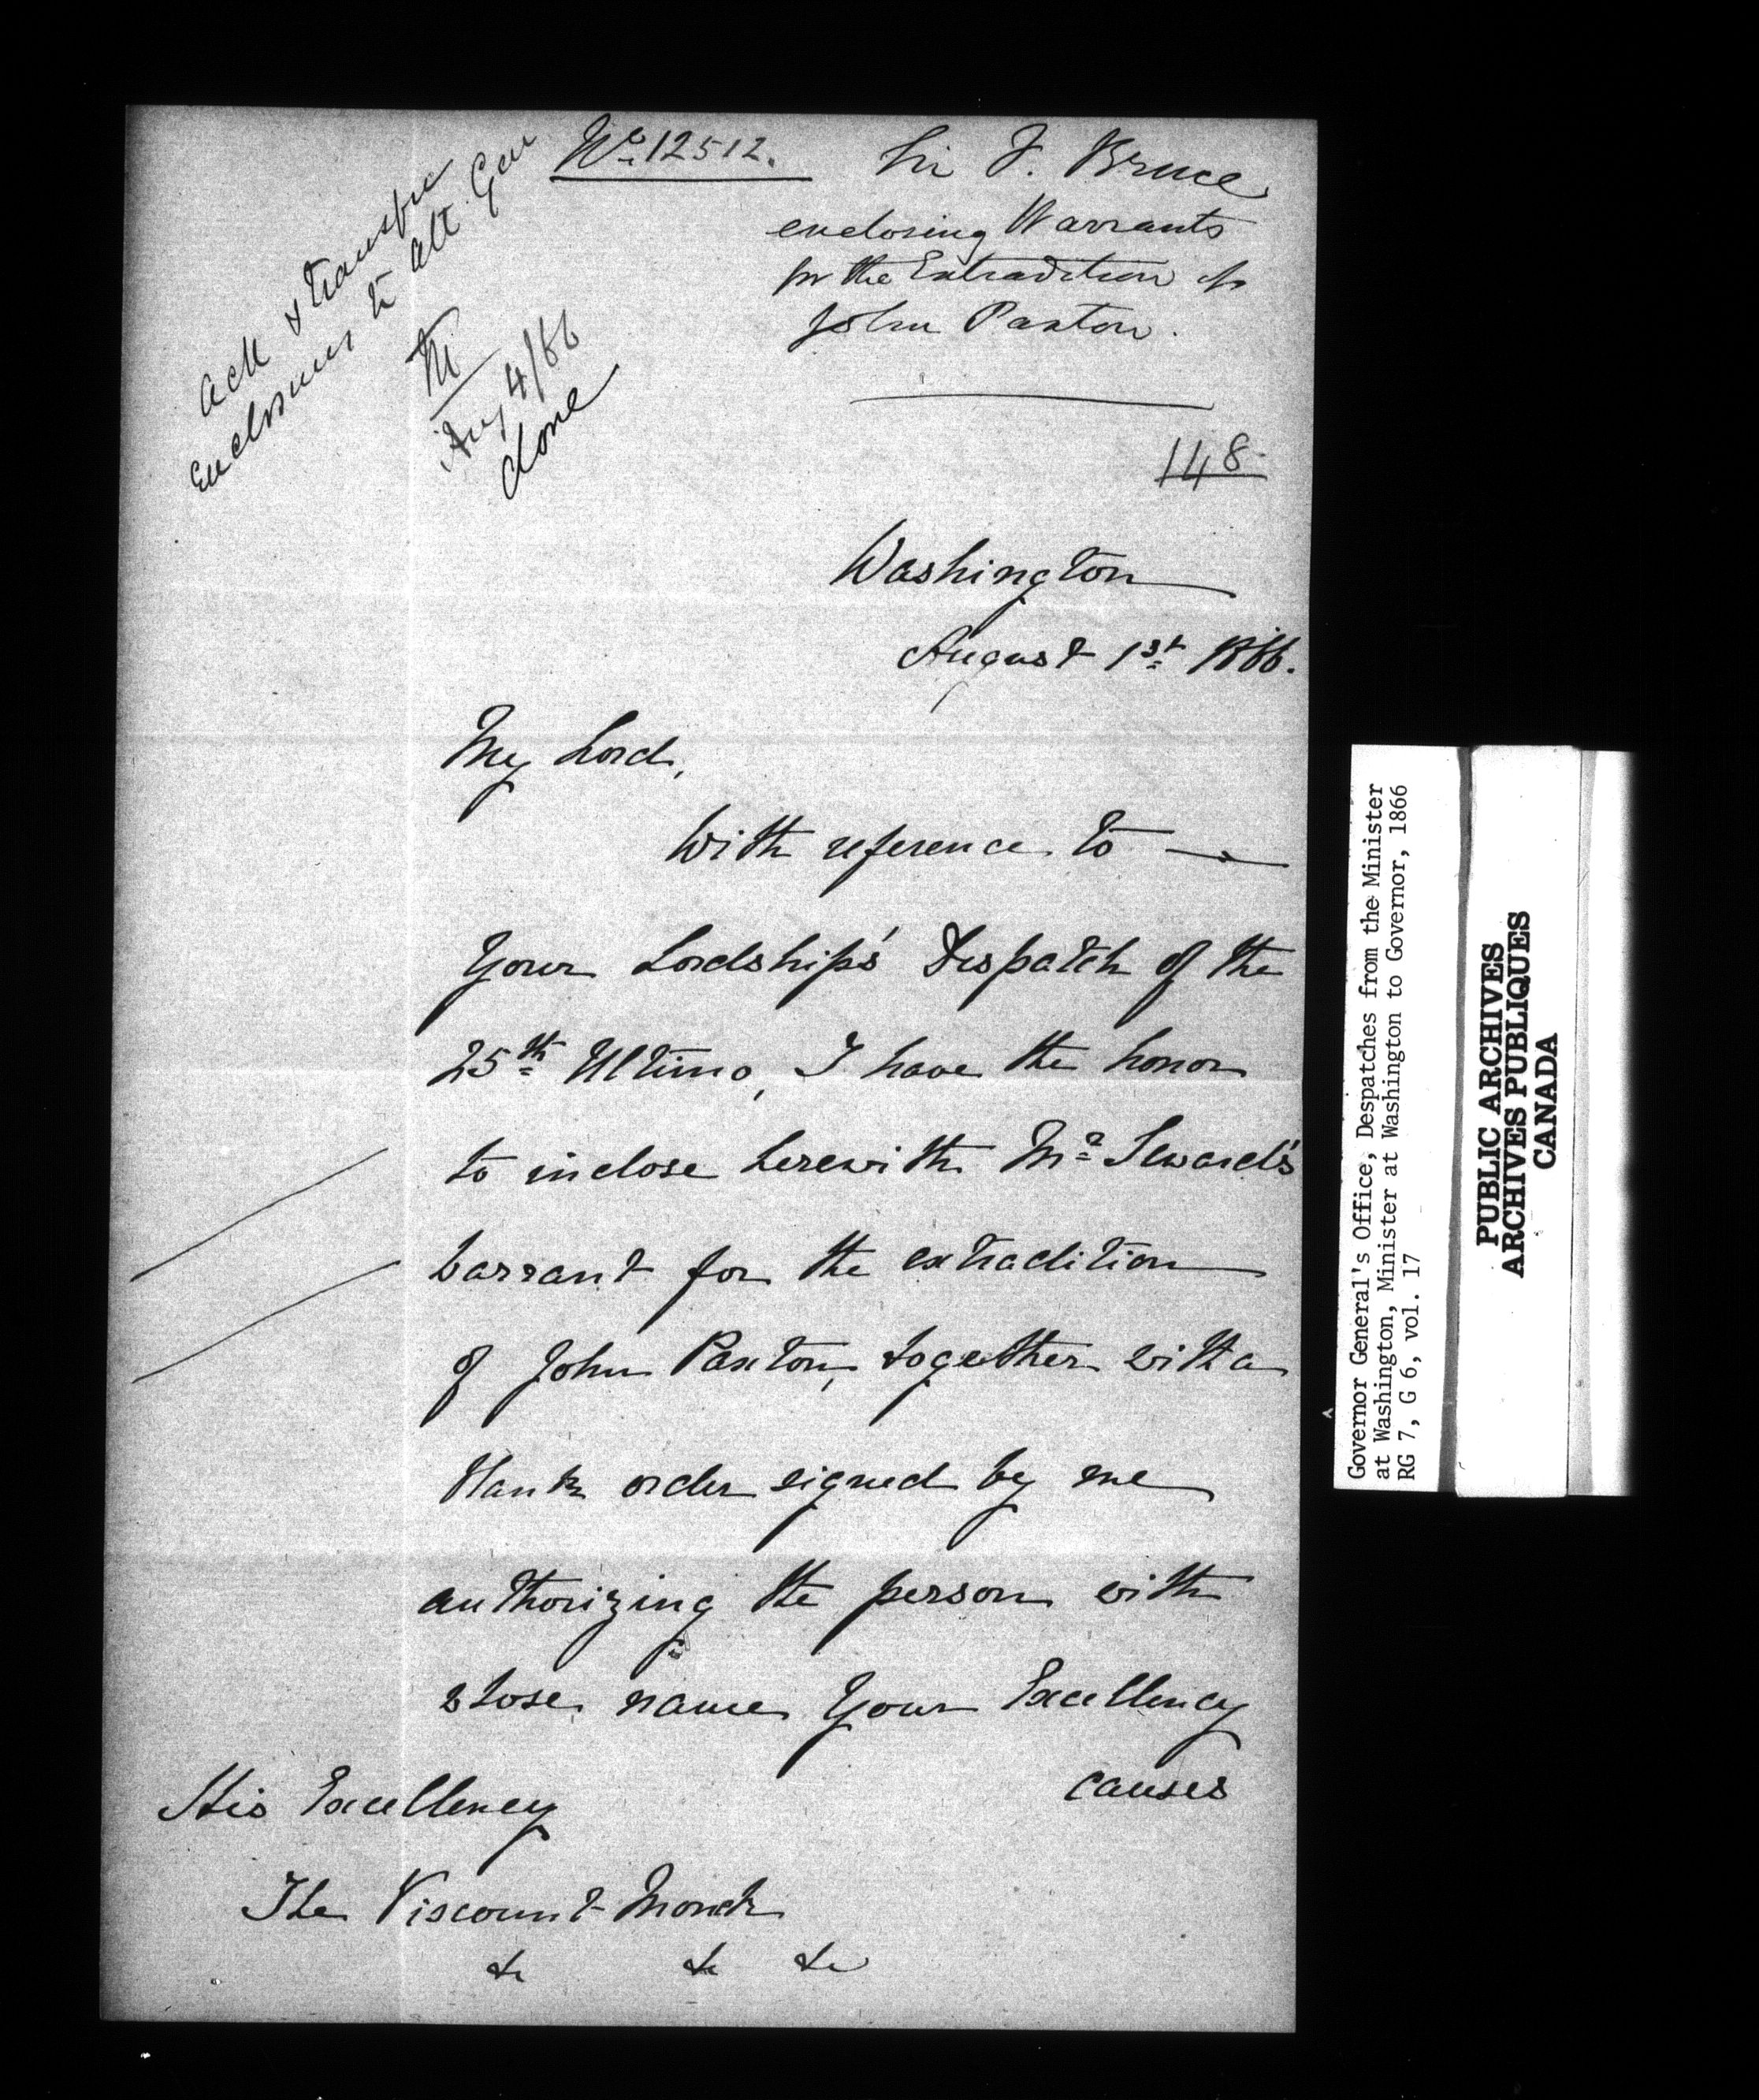 No 12512.
Sir F. Bruce
enclosing Warrants
for the Extradition of
John Paxton.
Ack & transfer
Enclosures to Att. Gen
M
Aug 4/66
done
148
Washington
August 1st 1866.
My Lord,
With reference to
Your Lordship's Despatch of the
25th Ultimo, I have the honor
to inclose herewith Mr Seward's
Warrant for the extradition
of John Paxton, together with a
blank order signed by me
authorizing the person with
whose name Your Excellency
causes
His Excellency
The Viscount Monck
&c &c &c
Governor General's Office, Despatches from the Minister
at Washington, Minister at Washington to Governor, 1866
RG 7, G 6, vol. 17
PUBLIC ARCHIVES
ARCHIVES PUBLIQUES
CANADA